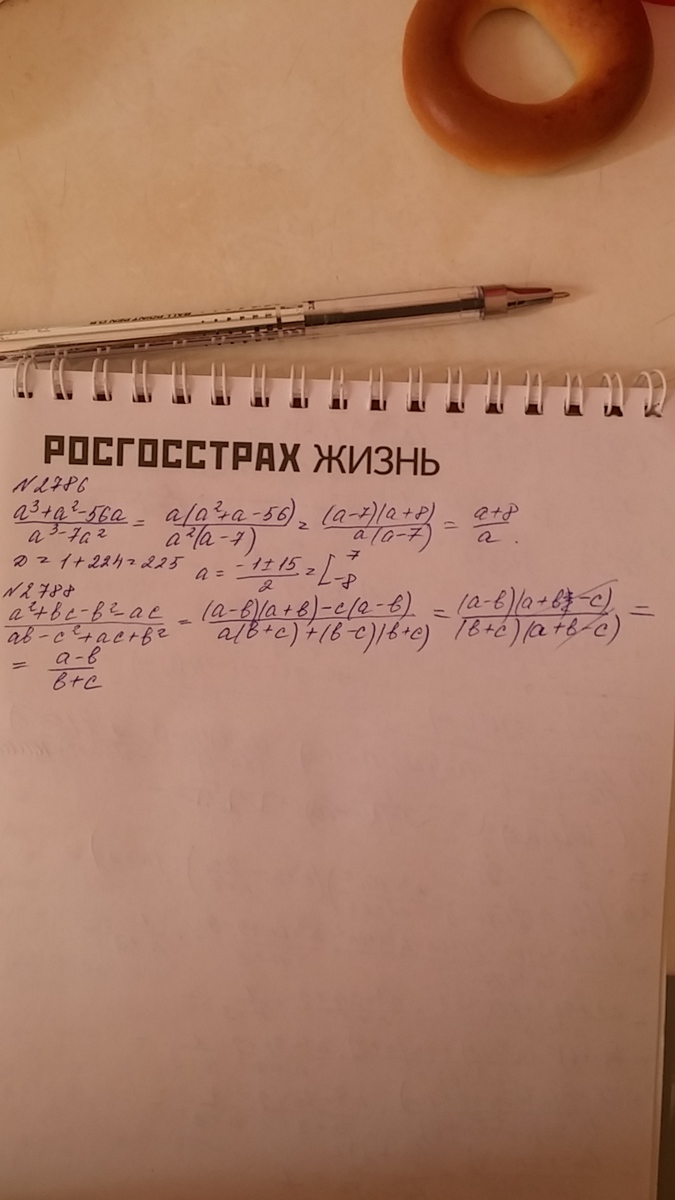 РОСГОССТРАХ ЖИЗНЬ
N2786
(a³+a²-56a)/(a³-7a²) = a(a²+a-56)/(a²(a-7)) = (a-7)(a+8)/(a(a-7)) = (a+8)/a.
D = 1+224=225 a = (-1±15)/2 = [7 -8
N2788
(a²+bc-b²-ac)/(ab-c²+ac+b²) = ((a-b)(a+b)-c(a-b))/(a(b+c)+(b-c)(b+c)) = (a-b)(a+b-c)/((b+c)(a+b-c)) =
= (a-b)/(b+c)